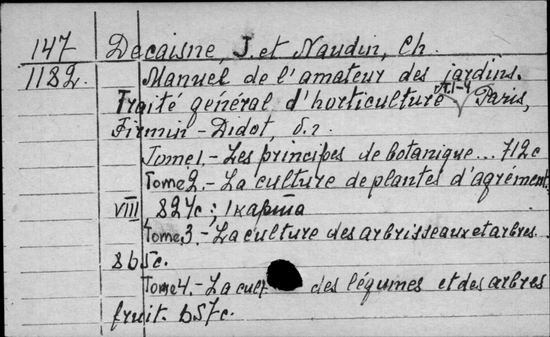 147 Decaisne, J. et Naudin, Ch.
1182. Manuel de l'amateur des jardins.
Traité général d'horticulture т.1-4 Paris,
Firmin-Didot, б.г.
Tome 1.-Les principes de botanique... 712с
Tome 2.-La culture de plantes d'agrément.
VIII 827с; 1 карта
Tome 3.-La culture des arbrisseaux et arbres.
865с.
Tome 4.-La cult des légumes et des arbres
fruit. 657с.